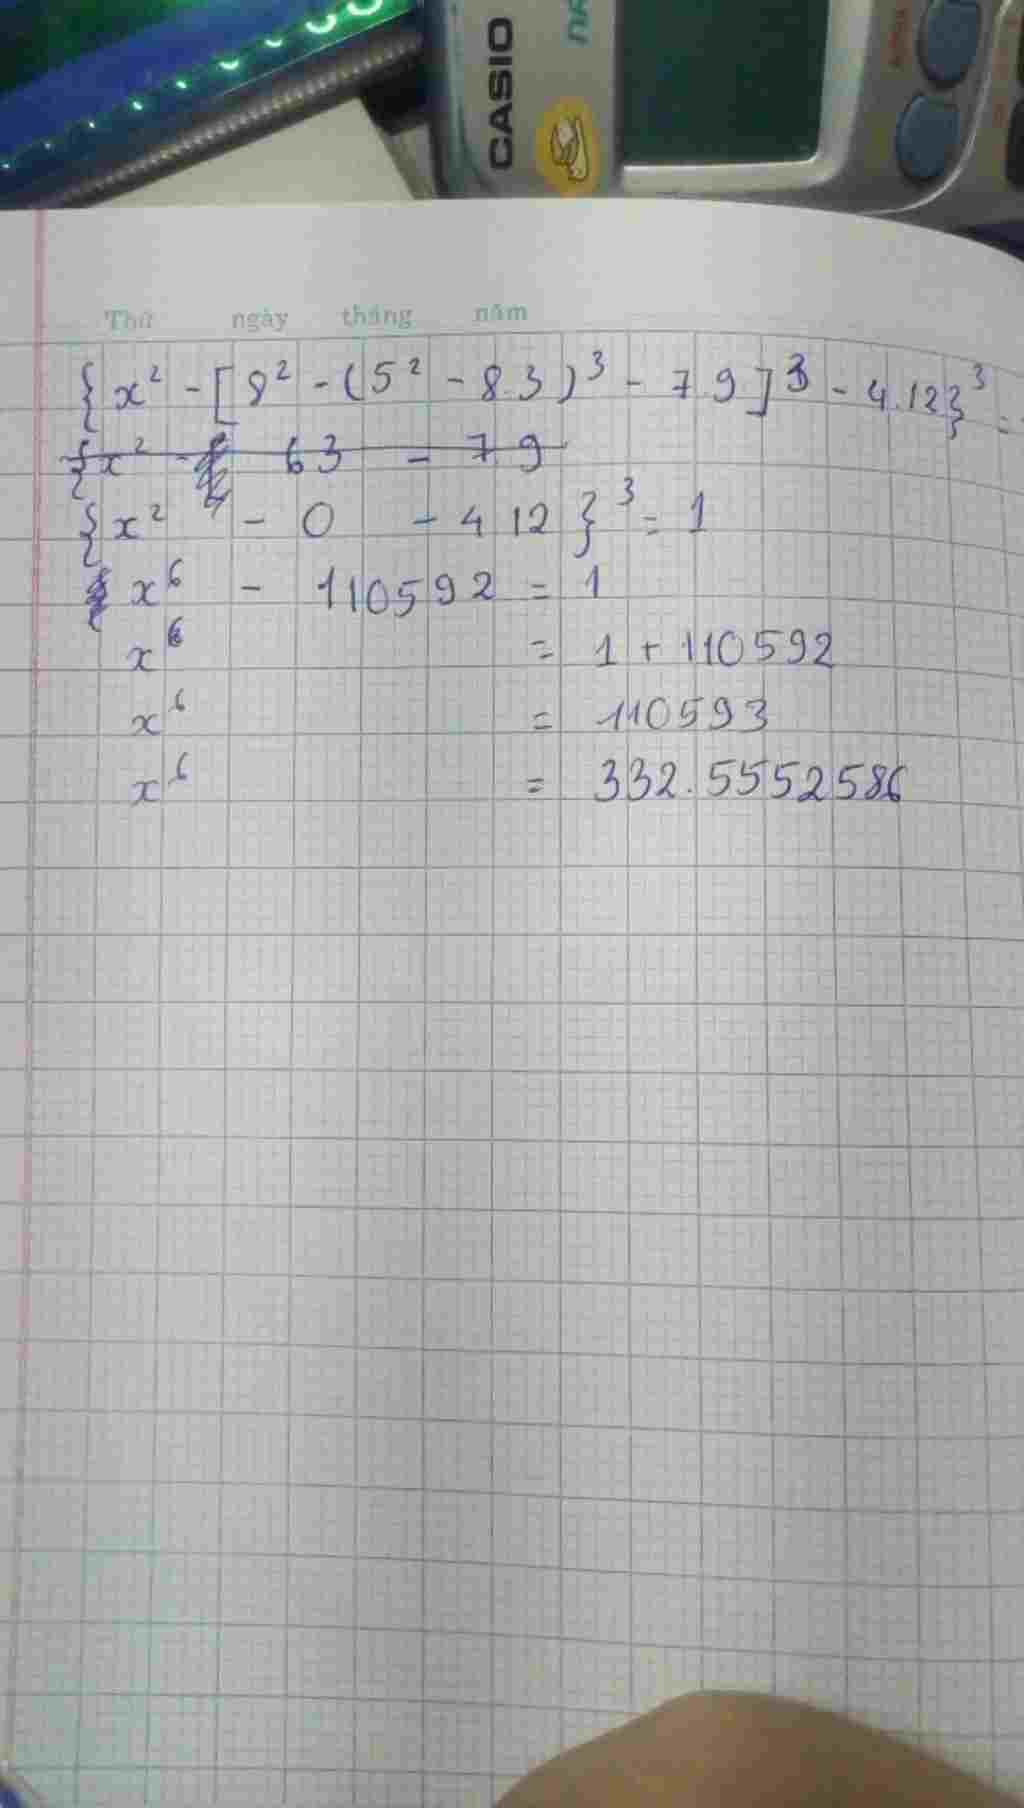 CASIO
Thứ ngày tháng năm
{x² - [8² - (5² - 8.3)³ - 7.9]³ - 4.12}³ =
{x² - 63 - 7.9
{x² - 0 - 4.12}³ = 1
x⁶ - 110592 = 1
x⁶ = 1 + 110592
x⁶ = 110593
x⁶ = 332.5552586